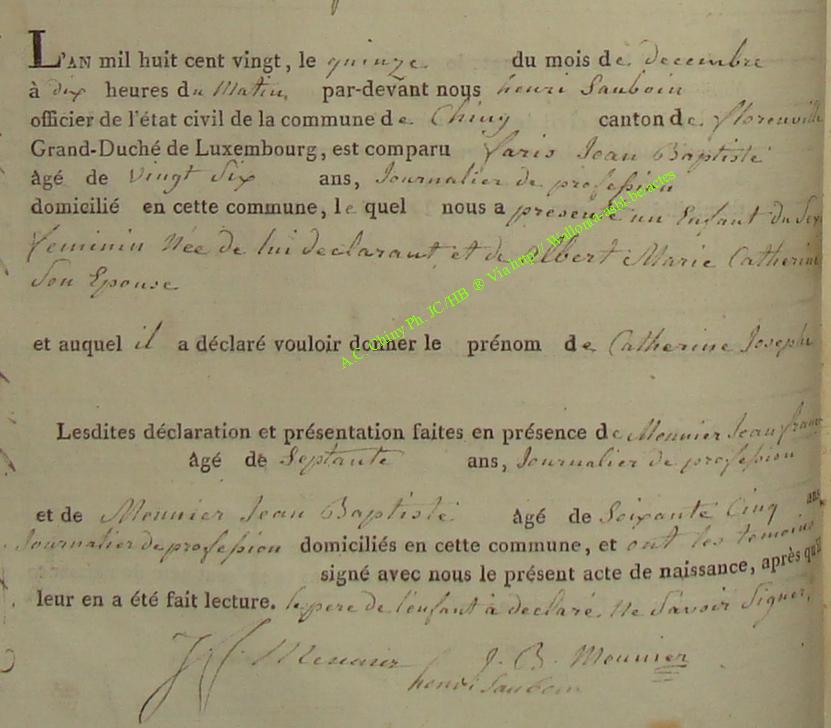 L'AN mil huit cent vingt, le quinze du mois de decembre
à dix heures du Matin, par-devant nous henri Sauboin
officier de l'état civil de la commune de Chiny canton de florenville
Grand-Duché de Luxembourg, est comparu faris Jean Baptiste
âgé de Vingt Six ans, Journalier de profession
domicilié en cette commune, le quel nous a presenté un Enfant du Sexe
feminin Née de lui declarant et de Albert Marie Catherine
Son Epouse
et auquel il a déclaré vouloir donner le prénom de Catherine Josephe
Lesdites déclaration et présentation faites en présence de Meunier Jean françois
âgé de Septante ans, Journalier de profession
et de Meunier Jean Baptiste âgé de Soixante Cinq ans
Journalier de profession domiciliés en cette commune, et ont les temoins
signé avec nous le présent acte de naissance, après qu'il
leur en a été fait lecture. le pere de l'enfant à declaré Ne Savoir Signer,
Meunier J. B. Meunier
henri Sauboin
A.C. Chiny Ph. JC/HB ® Via http/ Wallonia-asbl.be actes